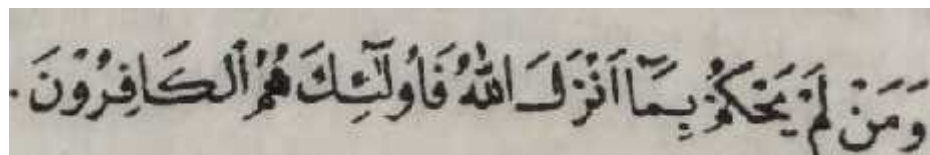 وَمَنْ لَمْ يَحْكُمْ بِمَٓا اَنْزَلَ اللّٰهُ فَاُولٰٓئِكَ هُمُ الْكَافِرُوْنَ.